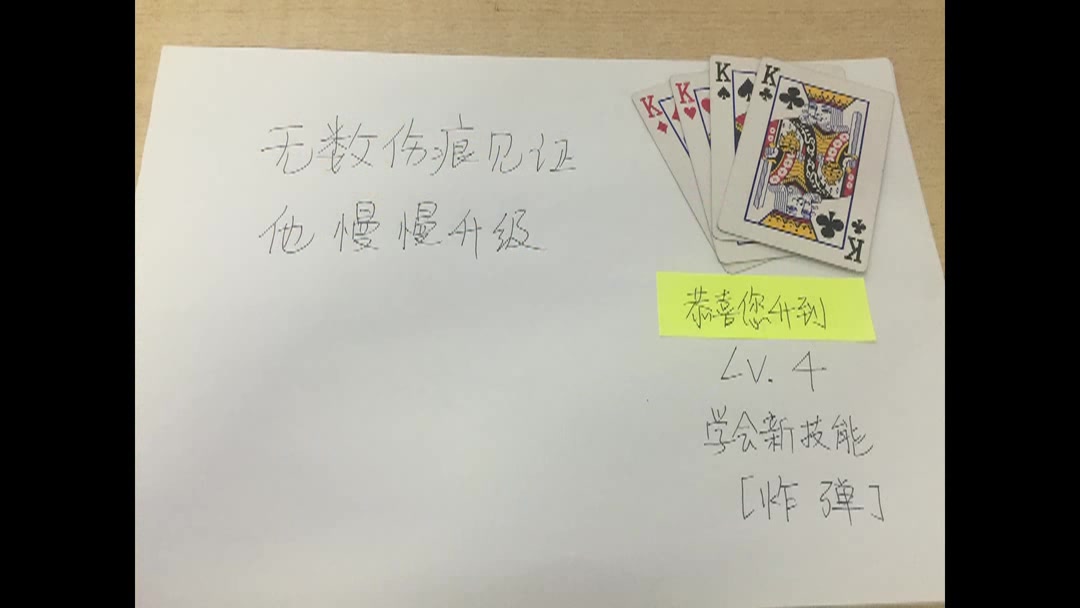 无数伤痕见证
他慢慢升级
K
K
K
K
K
恭喜您升到
LV. 4
学会新技能
[炸弹]